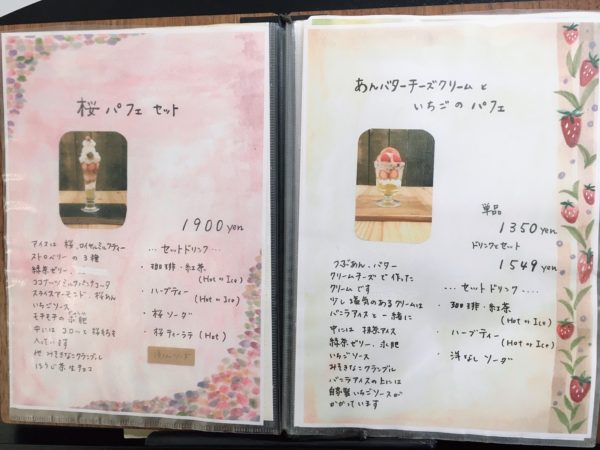 桜 パフェ セット
1900 yen
アイスは 桜、ロイヤルミルクティー
ストロベリー の 3種
緑茶ゼリー、
ココナッツミルクパンナコッタ
スライスアーモンド、桜あん
いちごソース
モチモチの 求肥
中には コローンと桜もちも
入っています
他 みそきなこクランブル
ほうじ茶 生チョコ
... セットドリンク ...
・珈琲・紅茶
(Hot or Ice)
・ハーブティー
(Hot or Ice)
・桜 ソーダ
・桜 ティーラテ (Hot)
あんバターチーズクリーム と
いちごの パフェ
単品
1350 yen
ドリンクとセット
1549 yen
つぶあん、バター
クリームチーズ で作った
クリーム です
少し 塩気のあるクリームは
バニラアイス と 一緒に
中には 抹茶アイス
緑茶ゼリー、求肥
いちごソース
みそきなこクランブル
バニラアイスの上には
自家製 いちごソースが
かかっています
... セットドリンク ...
・珈琲・紅茶
(Hot or Ice)
・ハーブティー
(Hot or Ice)
・洋なし ソーダ